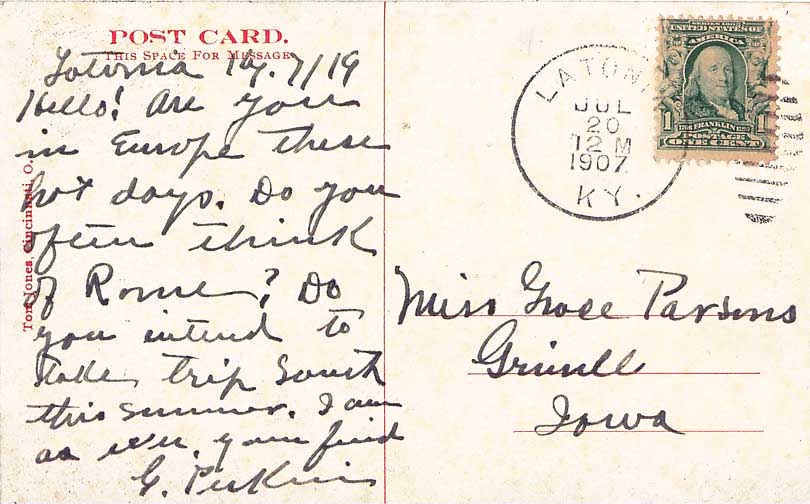 POST CARD.
THIS SPACE FOR MESSAGE
Latonia Ky. 7/19
Hello! Are you
in Europe these
hot days. Do you
often think
of Rome? Do
you intend to
take trip South
this summer. I am
as ever your friend
G. Perkins
Tom Jones, Cincinnati, O.
LATONIA
JUL
20
12 M
1907
KY.
SERIES 1902
UNITED STATES OF
AMERICA
1 FRANKLIN 1
POSTAGE
ONE CENT
Miss Grace Parsons
Grinnell
Iowa